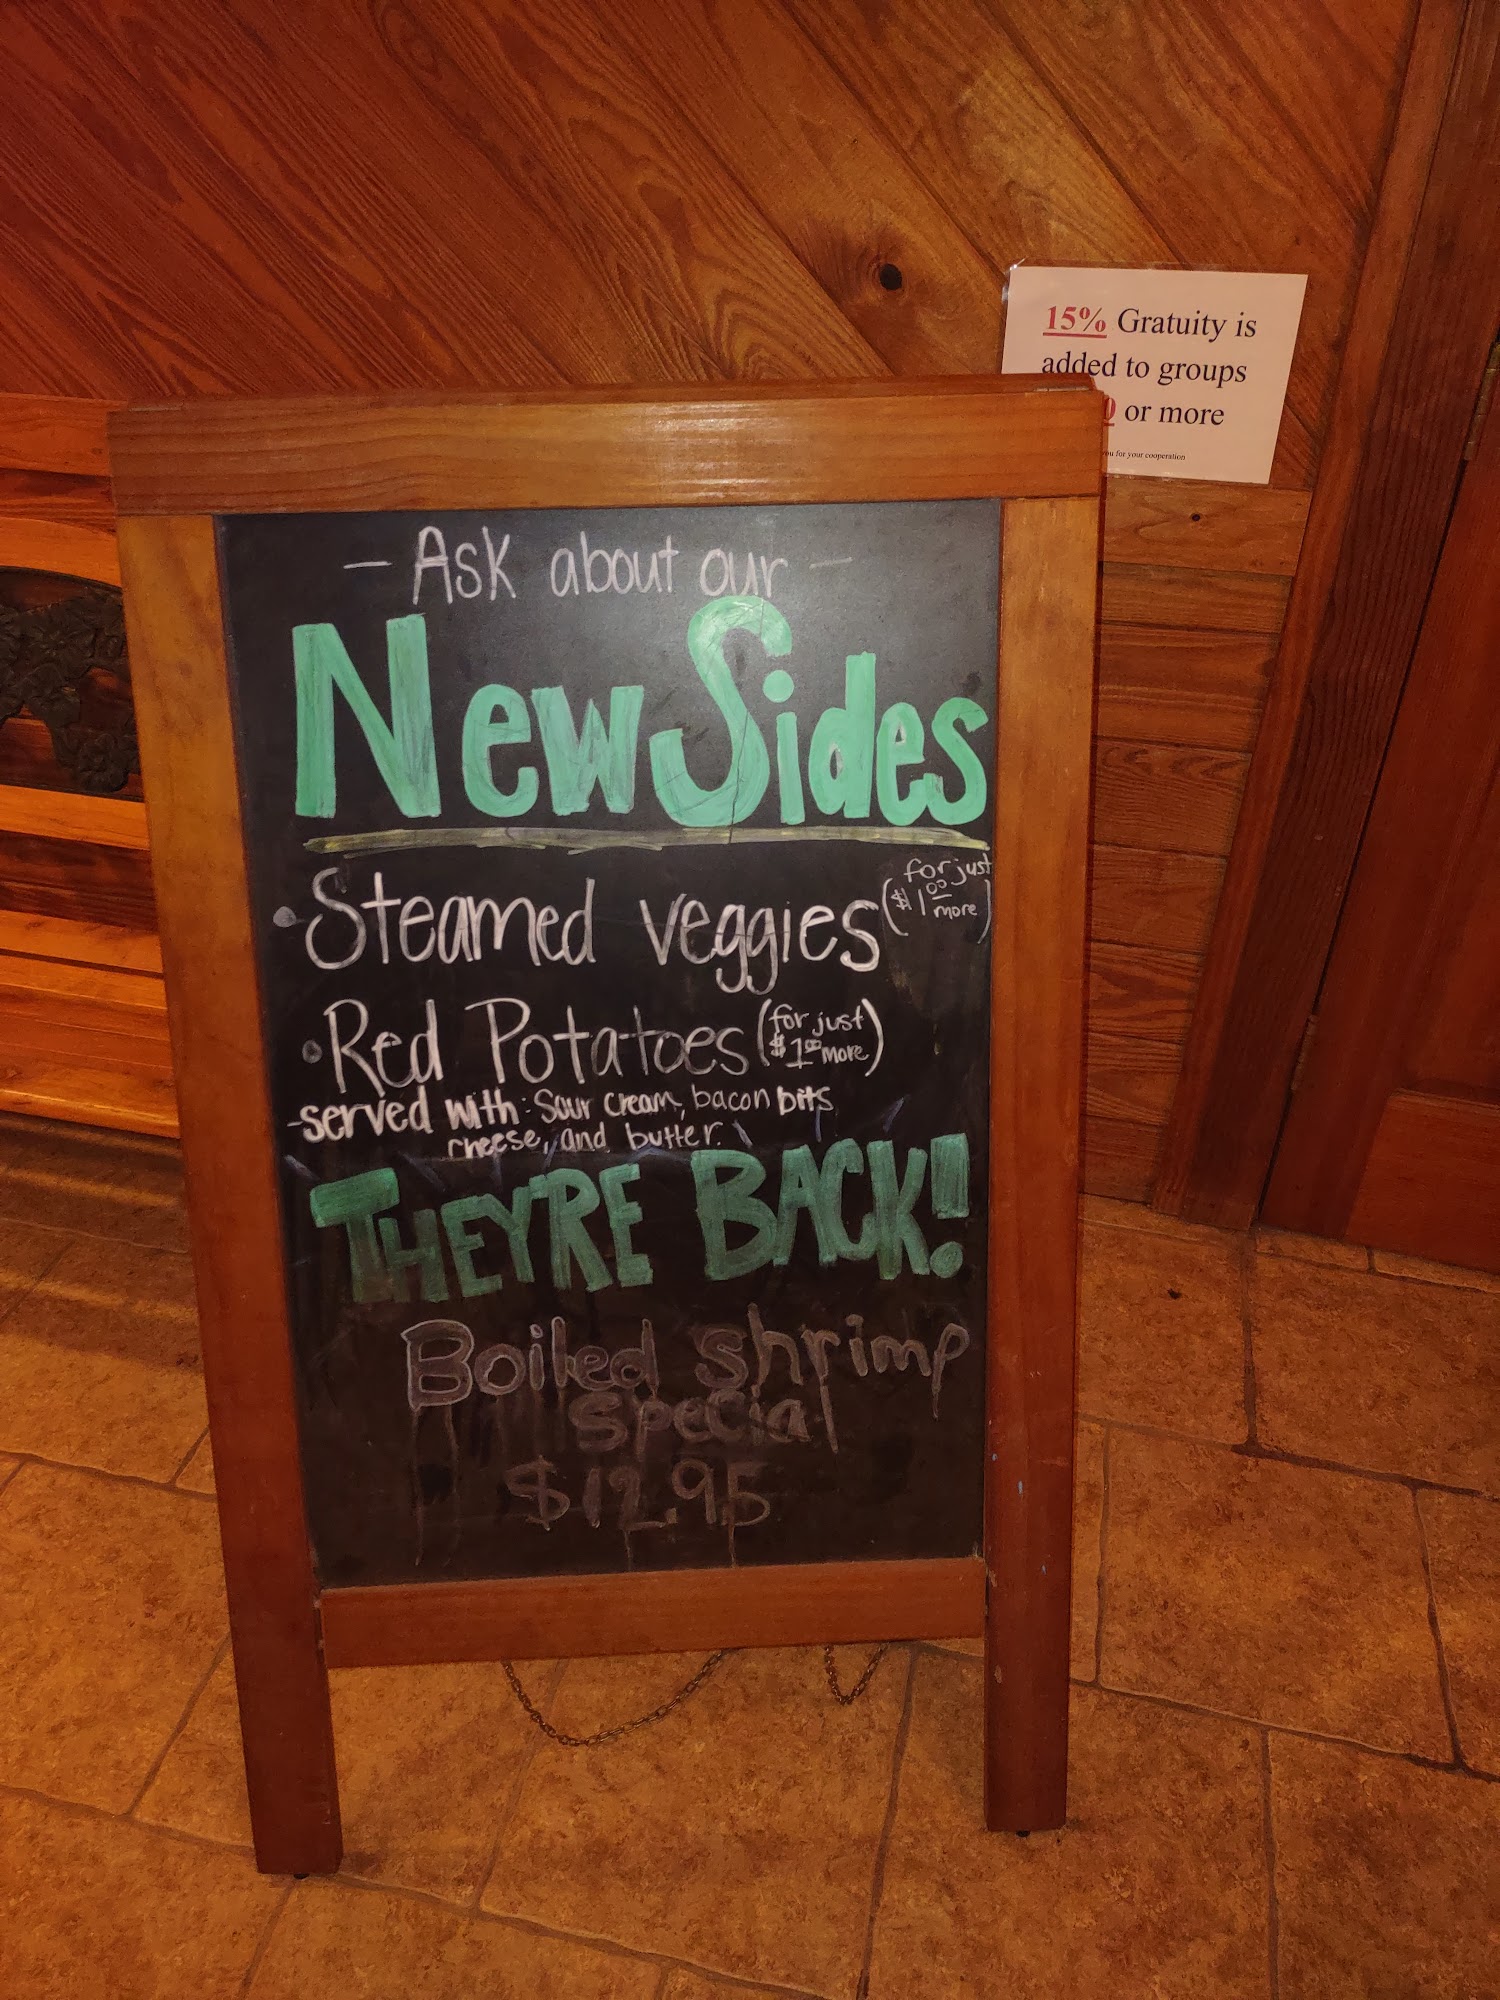 15% Gratuity is
added to groups
or more
for your cooperation
- Ask about our -
New Sides
• Steamed veggies (for just
$1.00 more)
• Red Potatoes (for just
$1.00 more)
-served with: Sour cream, bacon bits
cheese, and butter.
THEYRE BACK!
Boiled Shrimp
Special
$12.95